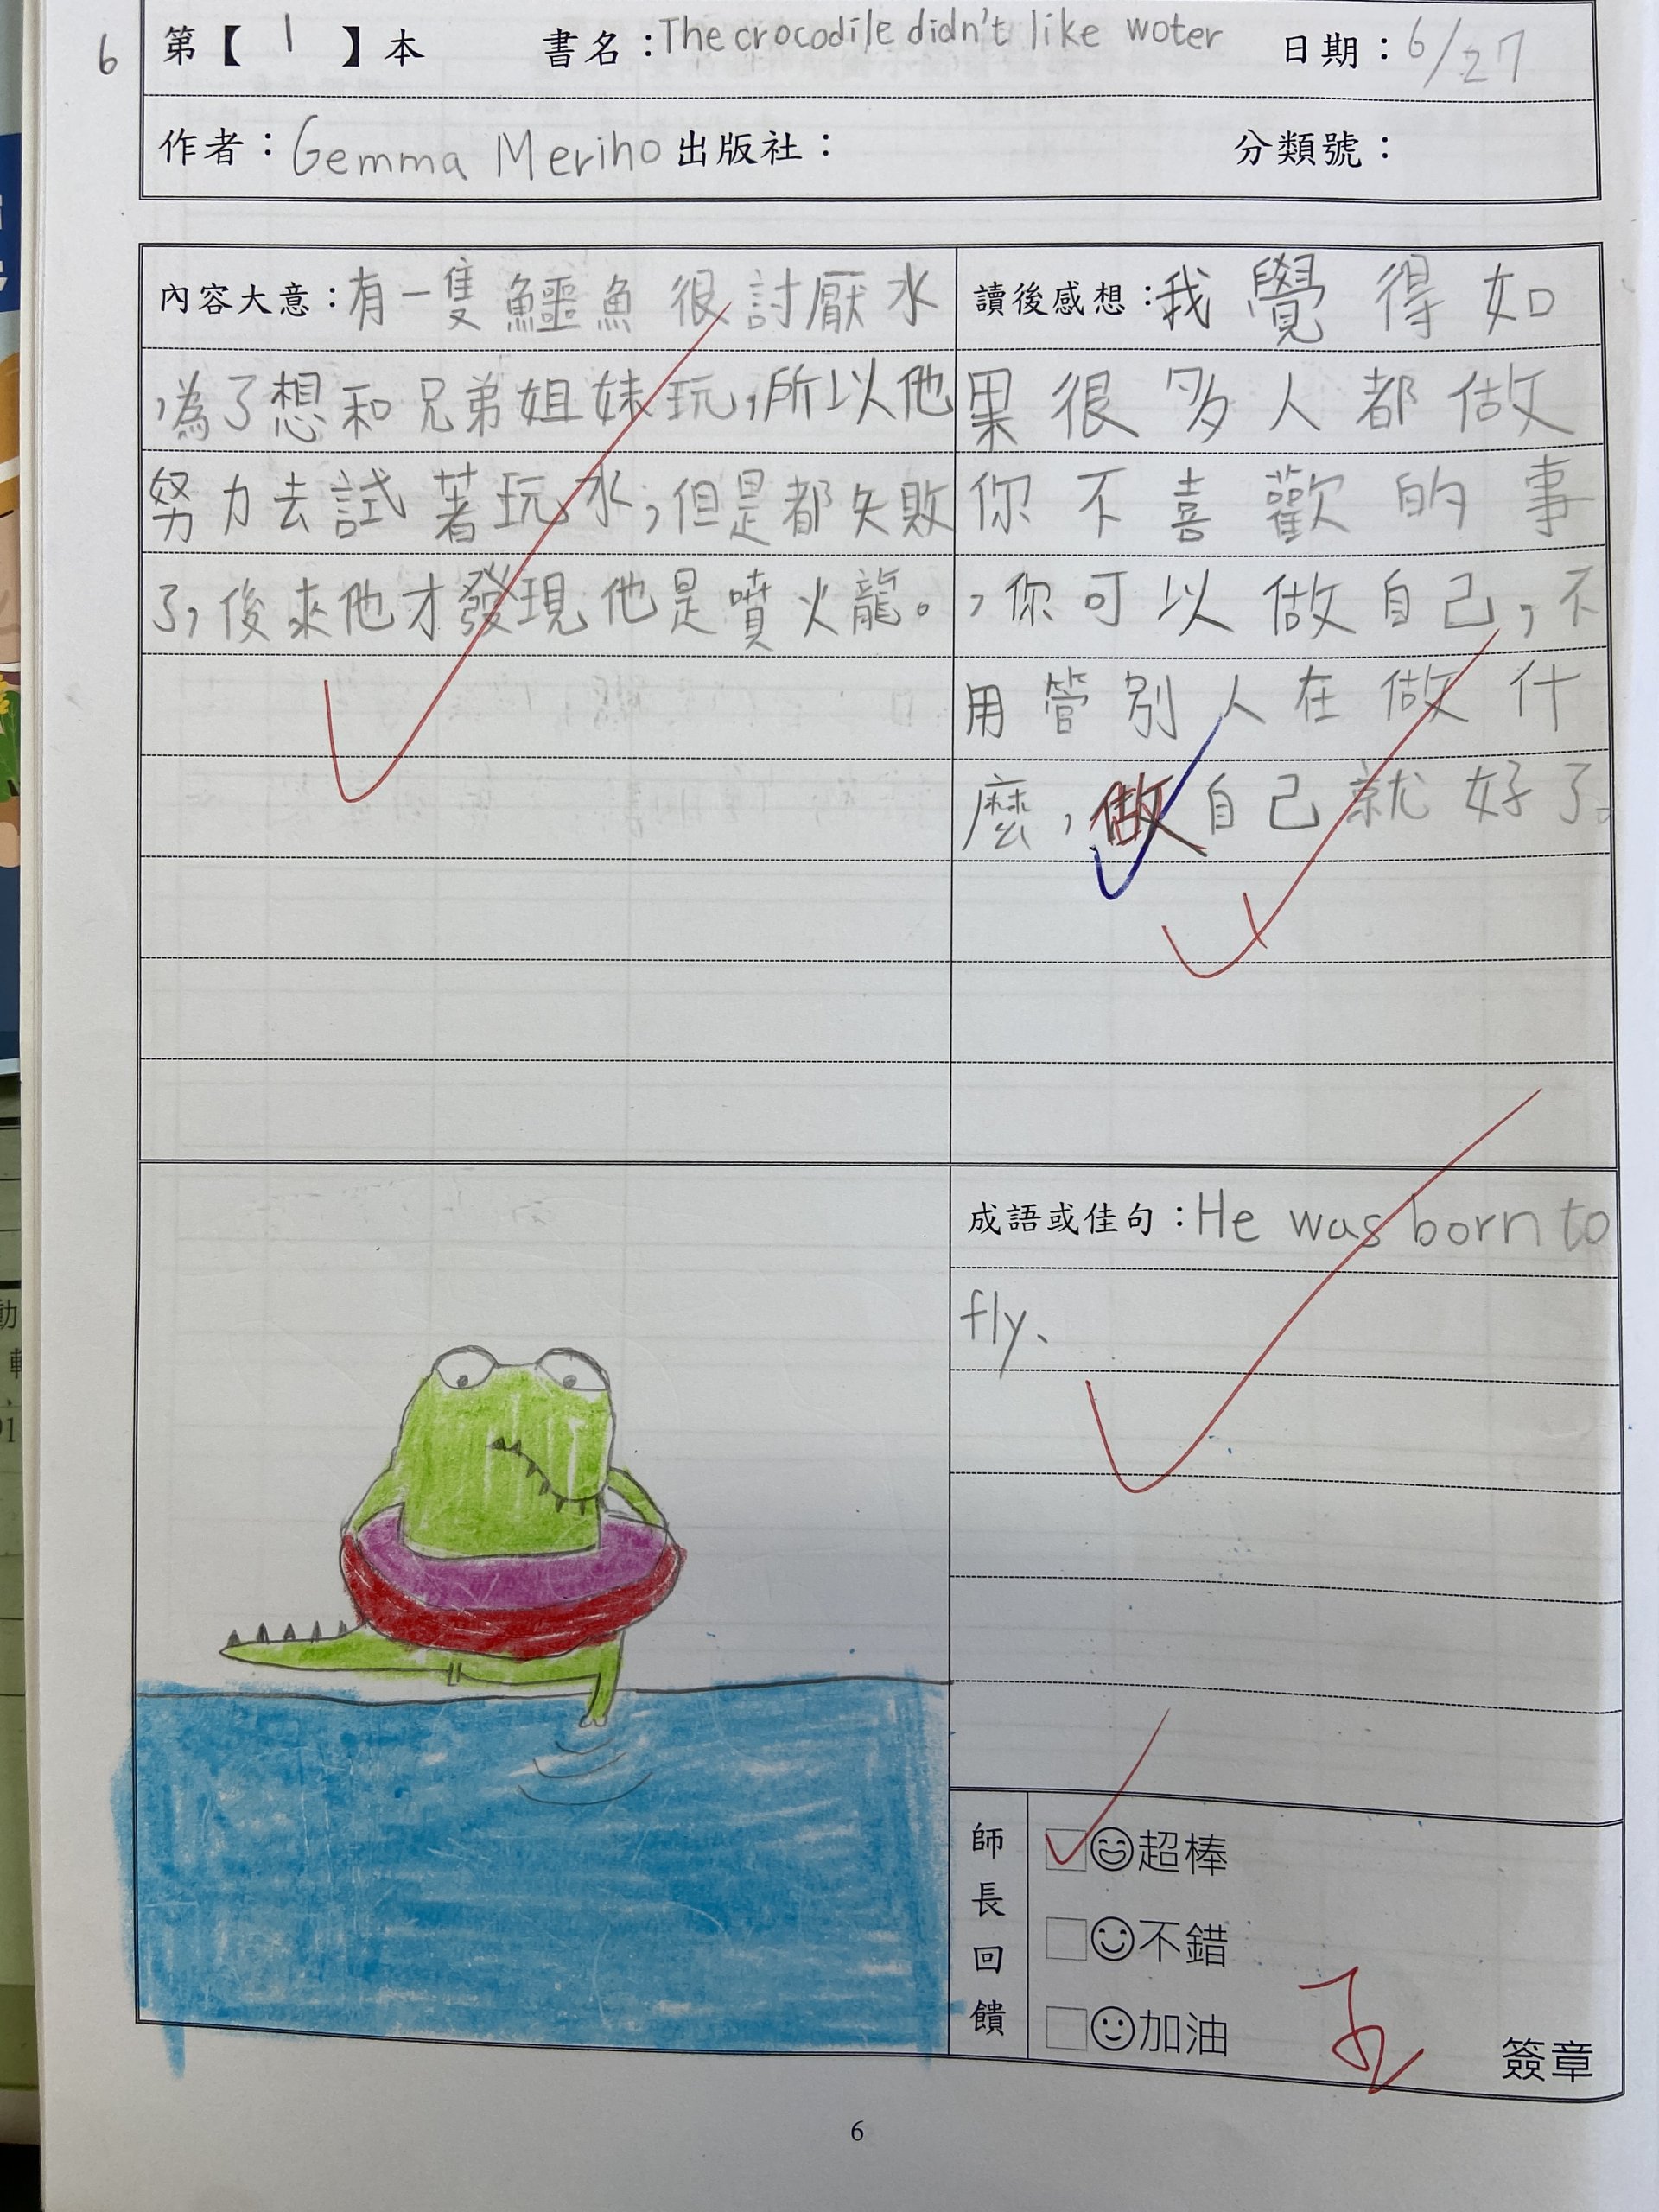 6
第【 1 】本 書名：The crocodile didn't like woter 日期：6/27
作者：Gemma Meriho 出版社： 分類號：
內容大意：有一隻鱷魚很討厭水
，為了想和兄弟姐妹玩，所以他
努力去試著玩水，但是都失敗
了，後來他才發現他是噴火龍。
讀後感想：我覺得如
果很多人都做
你不喜歡的事
，你可以做自己，不
用管別人在做什
麼，做自己就好了。
成語或佳句：He was born to
fly、
師長回饋
超棒
不錯
加油
簽章
6
動